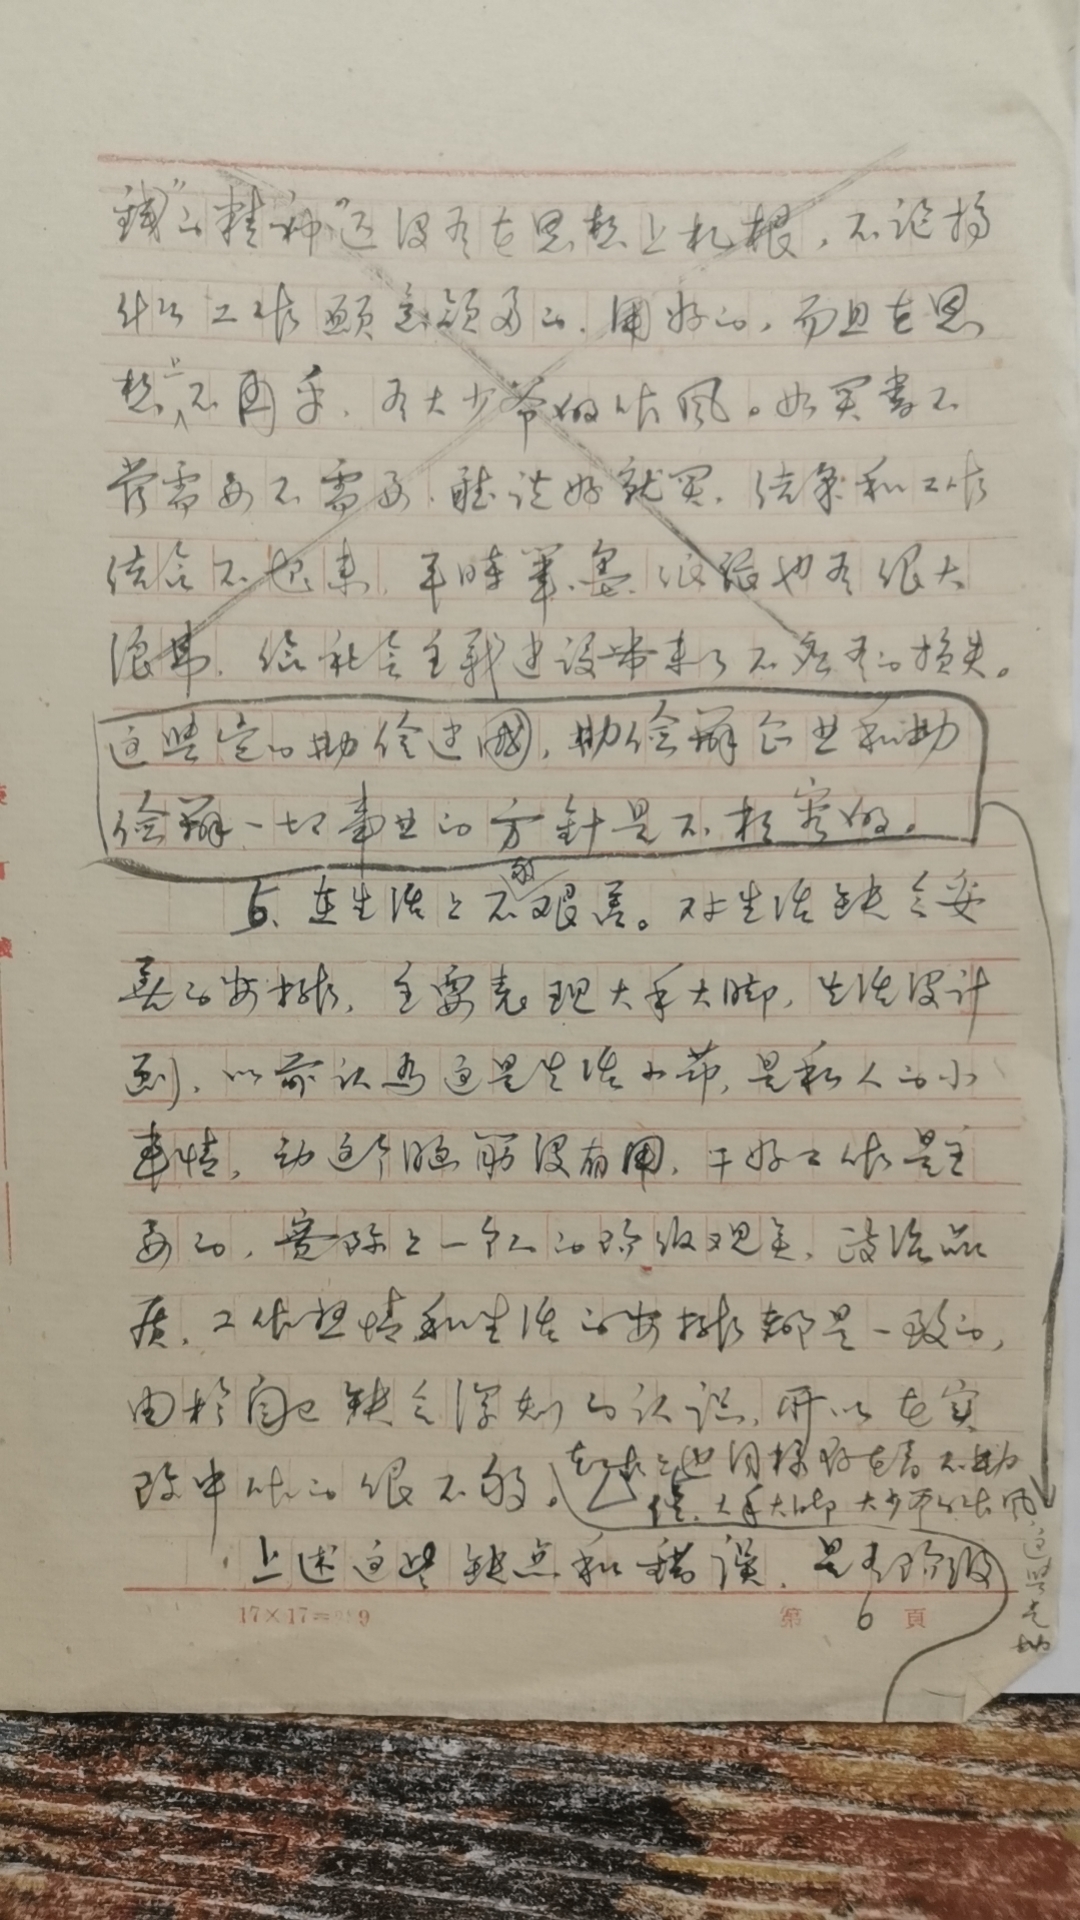 钱”的精神”还没有在思想上扎根，不论搞
什么工作愿意领多的，用好的，而且在思
想上不在乎，有大少爷的作风。如买书不
管需要不需要，听说好就买，结果和工作
结合不起来，平时笔、墨、纸张也有很大
浪费，给社会主义建设带来了不应有的损失。
这些完的勤俭建国，勤俭办企业和勤
俭办一切事业的方针是不相容的。
5、在生活上不够艰苦。对生活缺乏妥
善的安排，主要表现大手大脚，生活没计
划，以前认为这是生活小节，是私人的小
事情，动这个脑筋没有用，干好工作是主
要的，实际上一个人的阶级观点，政治品
质，工作热情和生活的安排都是一致的，
由于自己缺乏深刻的认识，所以在实
际中做的很不够。
也同样存在着不勤
俭、大手大脚 大少爷作风，这些是
上述这些缺点和错误，是有阶级
17×17=289
第 6 頁